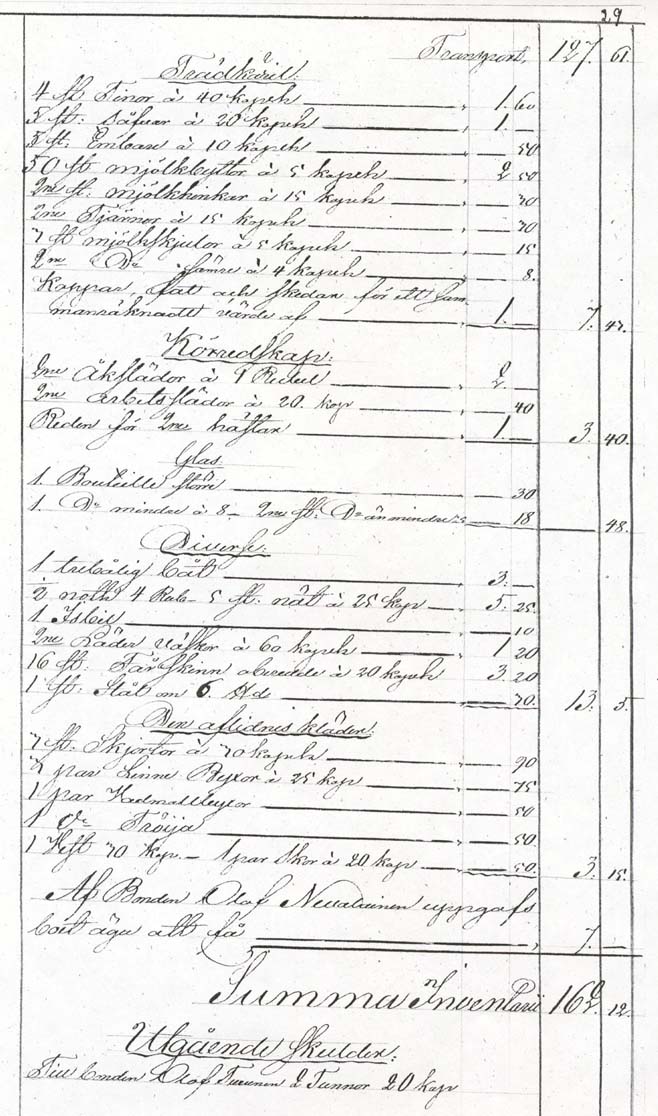 29
Transport, 127. 61.
Trädkäril:
4 st Tinor à 40 kopek 1. 60
5 st: Såfuar à 20 kopek 1. —
5 st: Embare à 10 kopek 50
50 st mjölkbyttor à 5 kopek 2 50
2ne st: mjölkhinkar à 15 kopek 30
2ne Tjärnor à 15 kopek 30
3 st mjölkskjulor à 5 kopek 15
2ne Do sämre à 4 kopek 8.
Koppar, fat och skedar för ett sam
manräknadt värde af 1. — 7. 43.
Körredskap:
2ne Åkslädor à 1 Rubel 2. —
2ne Arbetsslädor à 20. kop 40
Reden för 2ne hästar 1. — 3. 40.
Glas
1. Bouteille större 30
1. Do mindre à 8 — 2ne st: Do än mindre 18 — 48.
Diverse:
1 trebålig båt 3. —
½ noth 4 Rub — 5 st. nät à 25 kop 5. 25
1 Isbil 10
2ne Läder väskor à 60 kopek 1 20
16 st: Fårskinn oberedde à 20 kopek 3. 20
1 st: Stål om 6 30. 13. 5.
Den aflidnes kläder:
3 st: Skjortor à 30 kopek 90
3 par Linne Byxor à 25 kop 75
1 par Vadmalsbyxor 50
1 do Tröija 50.
1 Väst 30 kop. — 1 par skor à 20 kop 50. 3. 15.
Af Bonden Olof Nevalainen uppgafs
boet äga att få 7. —
Summa Inventarii 162 12.
Utgående skulder:
Till bonden Olof Turunen 2 Tunnor 20 kap